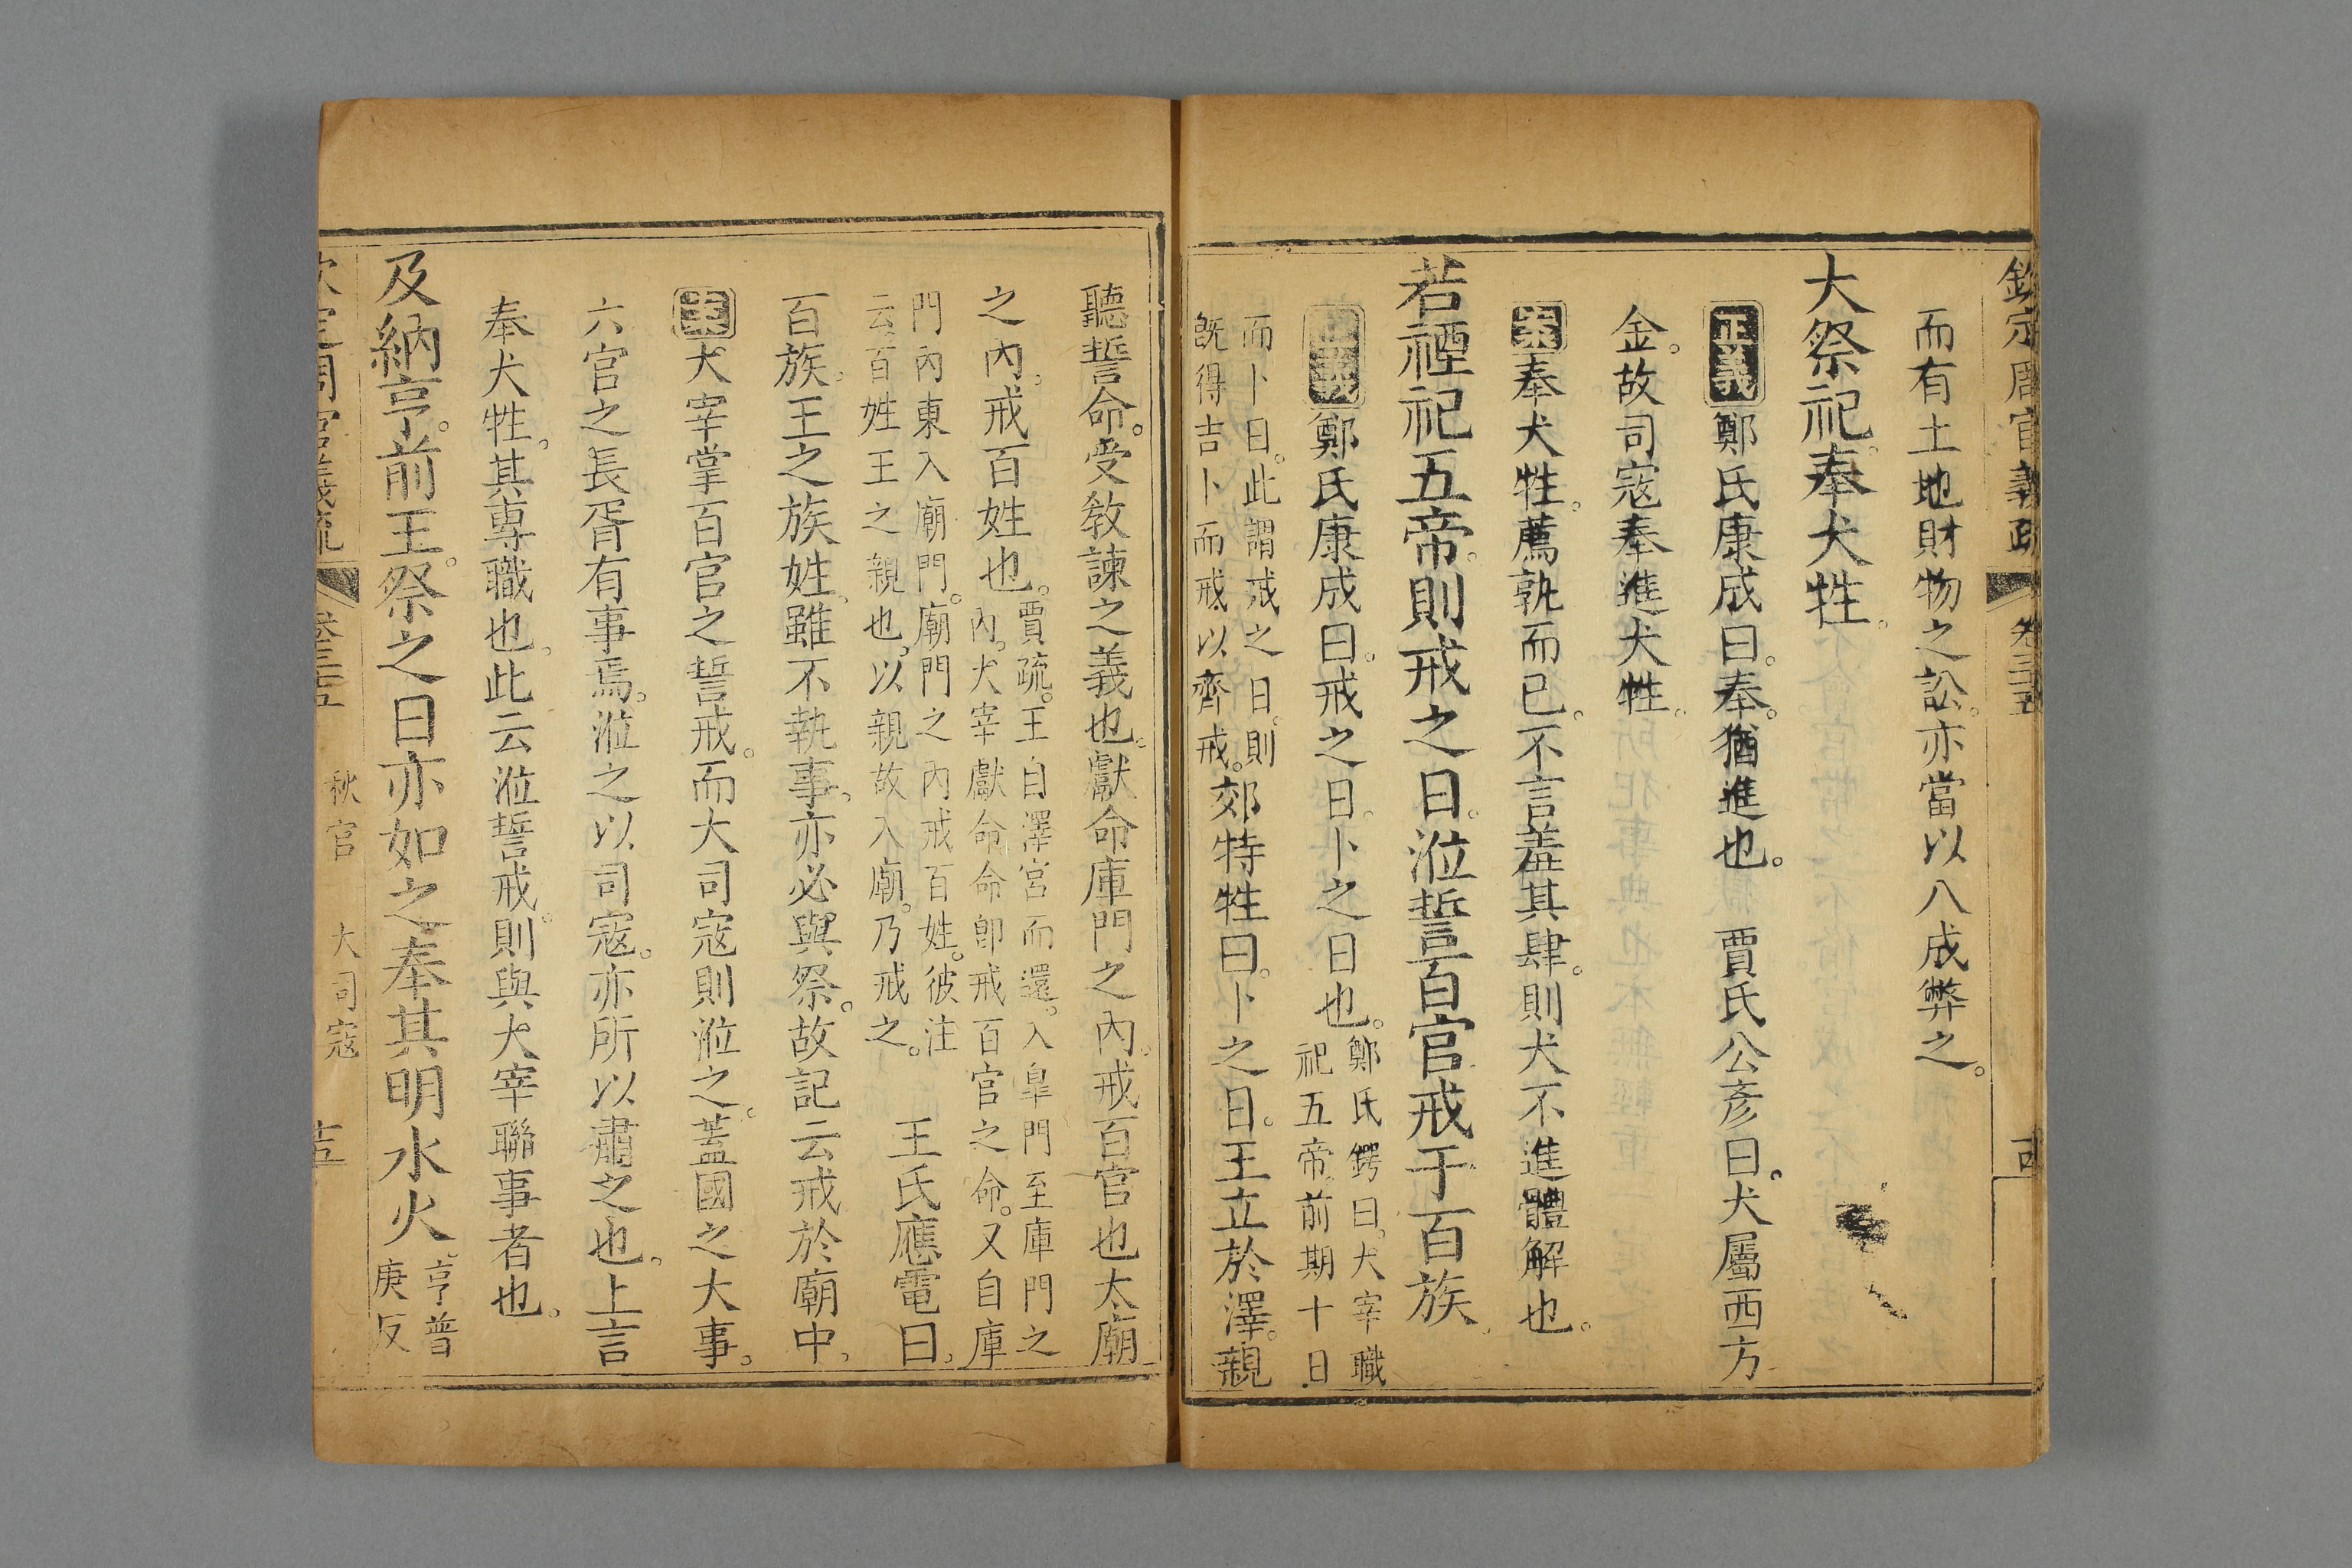 欽定周官義疏 卷三十五
而有土地財物之訟亦當以八成弊之。
大祭祀。奉犬牲。
正義鄭氏康成曰。奉。猶進也。 賈氏公彥曰。犬屬西方
金。故司寇奉進犬牲。
案奉犬牲。薦孰而已。不言羞其肆。則犬不進體解也。
若禋祀五帝。則戒之日。涖誓百官戒于百族。
正義鄭氏康成曰。戒之日。卜之日也。鄭氏鍔曰。大宰職
祀五帝。前期十日
而卜日。此謂戒之日。則
旣得吉卜而戒以齊戒。郊特牲曰。卜之日。王立於澤。親
聽誓命。受敎諫之義也。獻命庫門之內。戒百官也太廟
之內。戒百姓也。賈疏。王自澤宮而還。入皐門至庫門之
內。大宰獻命命卽戒百官之命。又自庫
門內東入廟門。廟門之內戒百姓。彼注
云百姓王之親也。以親故入廟。乃戒之。 王氏應電曰。
百族。王之族姓。雖不執事。亦必與祭。故記云戒於廟中。
案大宰掌百官之誓戒。而大司寇則涖之。蓋國之大事。
六官之長胥有事焉。涖之以司寇。亦所以肅之也。上言
奉犬牲。其專職也。此云涖誓戒。則與大宰聯事者也。
及納亨。前王。祭之日亦如之奉其明水火亨普
庚反
欽定周官義疏 卷三十五 秋官 大司寇 十五